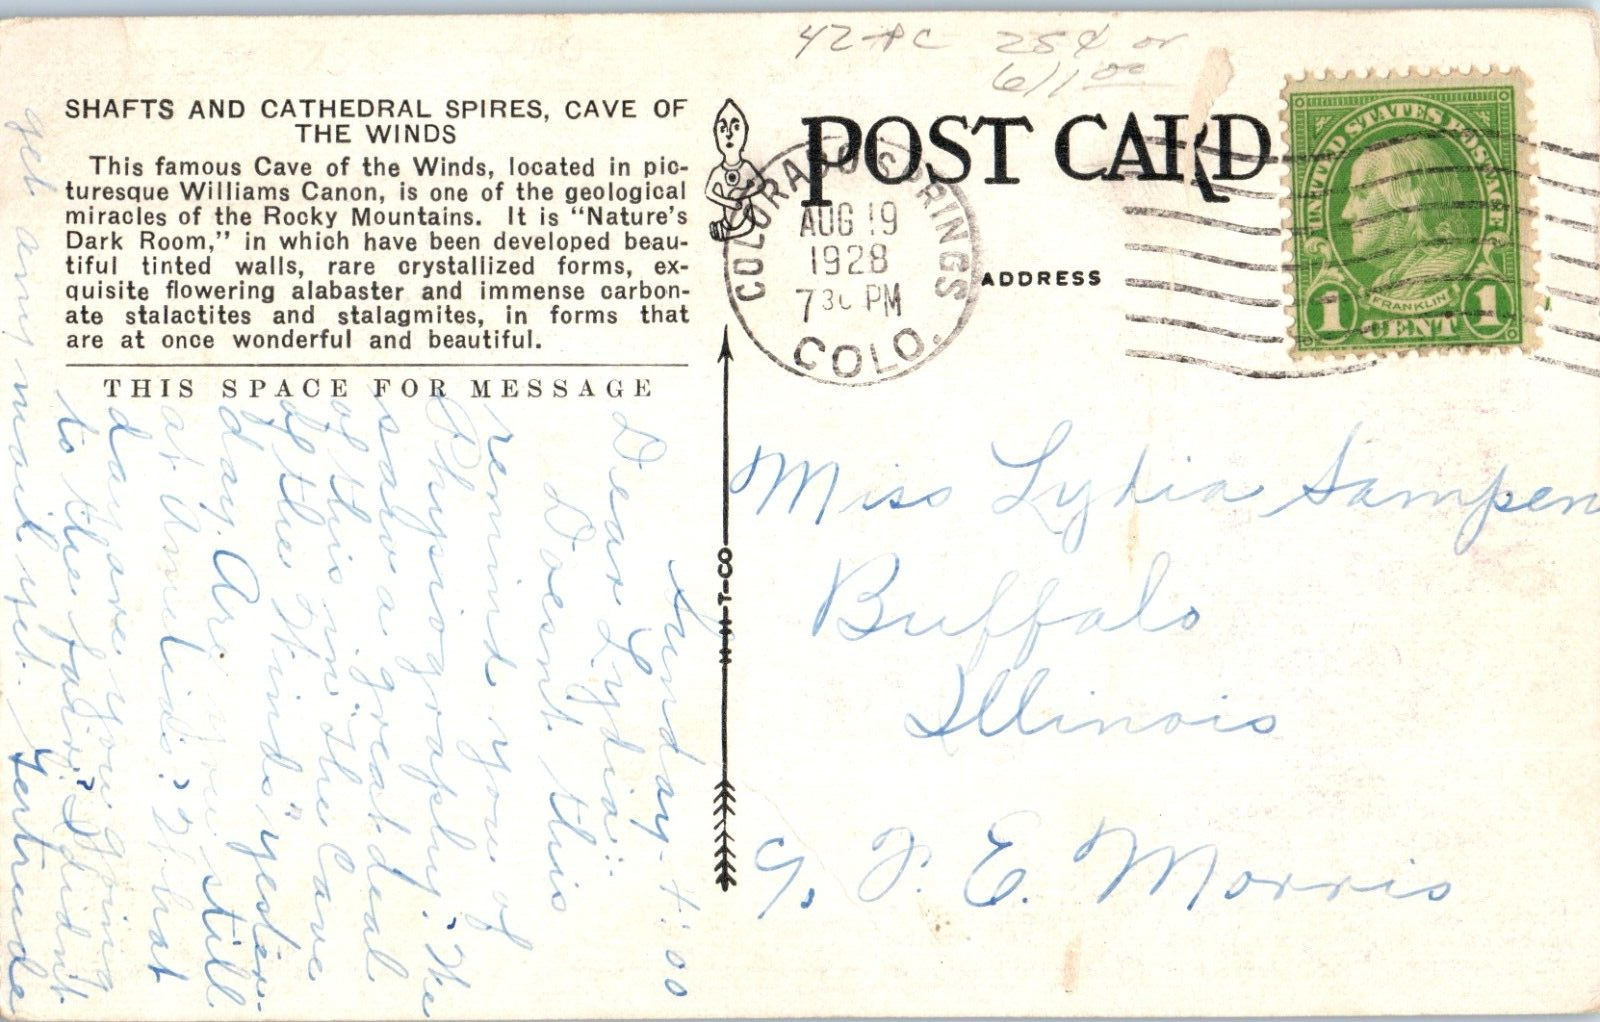 42 PC 25¢ or
6/1 00
SHAFTS AND CATHEDRAL SPIRES, CAVE OF
THE WINDS
This famous Cave of the Winds, located in pic-
turesque Williams Canon, is one of the geological
miracles of the Rocky Mountains. It is "Nature's
Dark Room," in which have been developed beau-
tiful tinted walls, rare crystallized forms, ex-
quisite flowering alabaster and immense carbon-
ate stalactites and stalagmites, in forms that
are at once wonderful and beautiful.
THIS SPACE FOR MESSAGE
Sunday - 4:00
Dear Lydia:
Doesnt this
remind you of
Physiography? We
saw a great deal
of this in "The Cave
of the Winds" yester-
day. Are you still
at What
day are you going
to the fair? I didnt
get any mail yet. Gertrude
H-H-T-CO
POST CARD
COLORADO SPRINGS
AUG 19
1928
730 PM
COLO.
ADDRESS
UNITED STATES POSTAGE
FRANKLIN
1 CENT 1
Miss Lydia Sampen
Buffalo
Illinois
c/o E. Morris